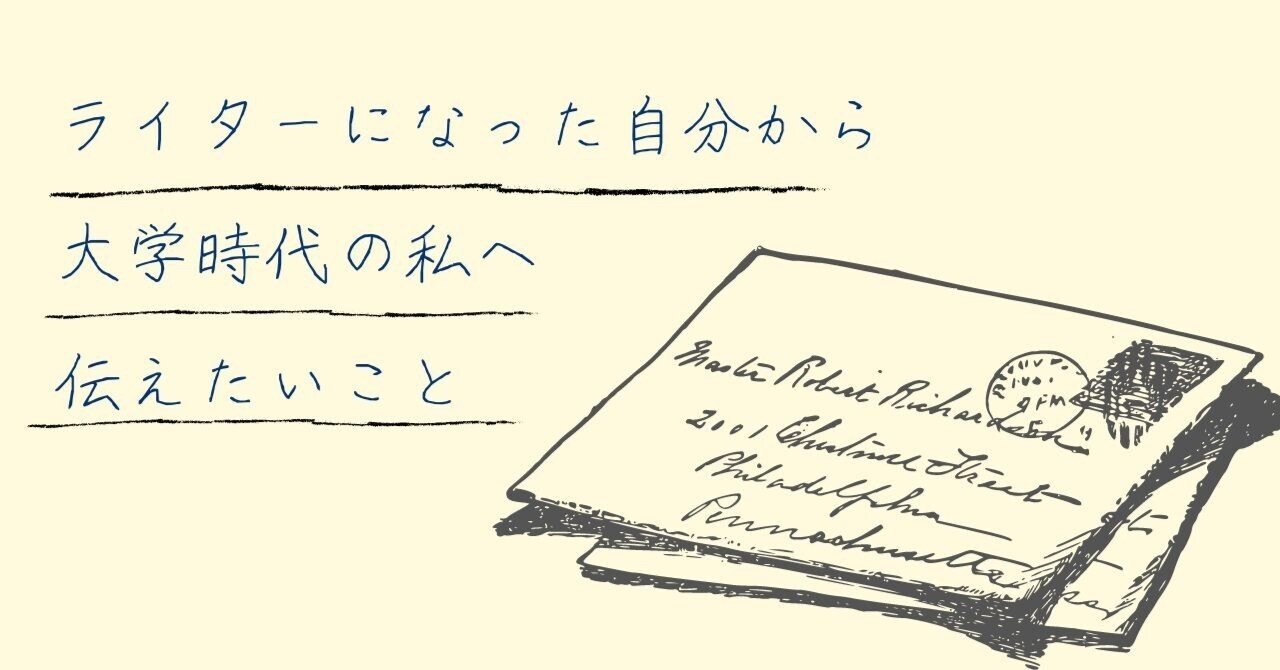 ライターになった自分から
大学時代の私へ
伝えたいこと
Master Robert Richardson
2001 Street
Philadelphia